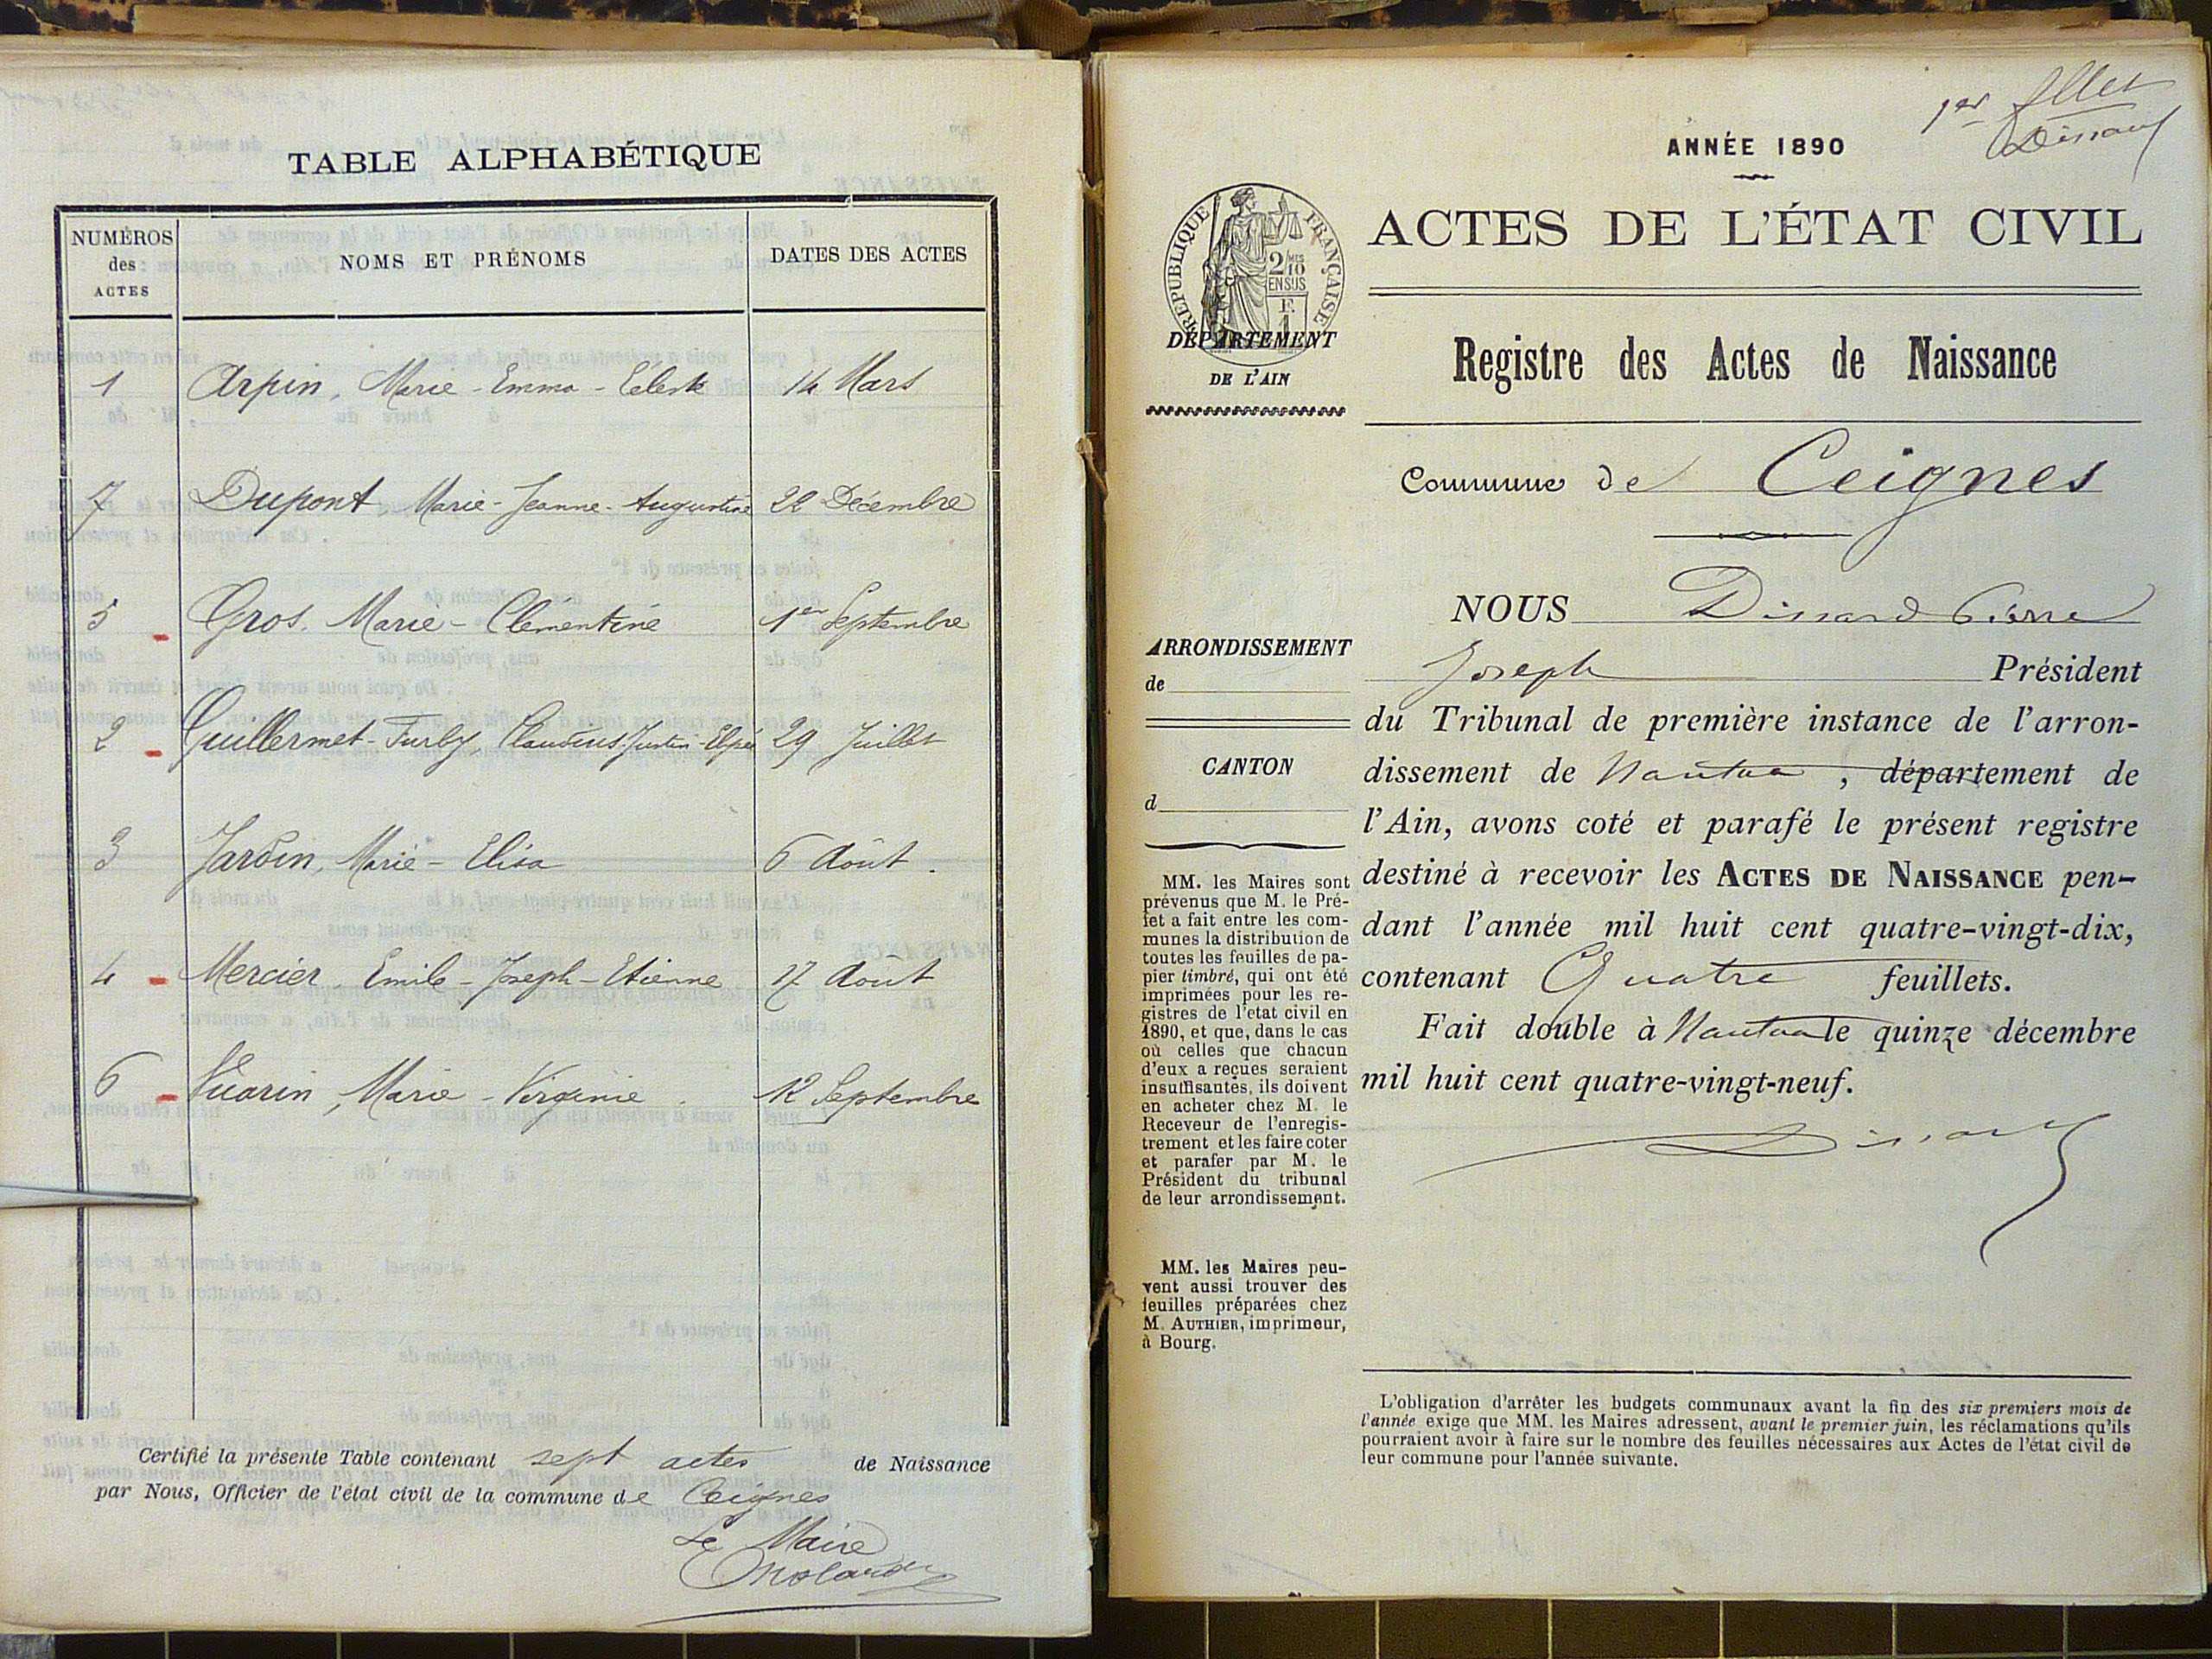 TABLE ALPHABÉTIQUE
NUMÉROS des ACTES
NOMS ET PRÉNOMS
DATES DES ACTES
1 Arpin, Marie-Emma-Céleste 14 Mars
7 Dupont Marie-Jeanne-Augustine 22 Décembre
5 Gros. Marie-Clémentine 1er Septembre
2 Guillermet-Furby Claudius-Justin 29 Juillet
3 Jardin, Marie-Elisa 6 Août.
4 Mercier Emile-Joseph-Etienne 17 Août
6 Marie-Virginie 12 Septembre
Certifié la présente Table contenant sept actes de Naissance
par Nous, Officier de l'état civil de la commune de Ceignes
Le Maire
1er
Dissard
ANNÉE 1890
ACTES DE L'ÉTAT CIVIL
RÉPUBLIQUE FRANÇAISE
2/10 MES
EN SUS
F.
1
DÉPARTEMENT
DE L'AIN
Registre des Actes de Naissance
Commune de Ceignes
NOUS Dissard Pierre
Joseph Président
du Tribunal de première instance de l'arron-
dissement de Nantua, département de
l'Ain, avons coté et parafé le présent registre
destiné à recevoir les ACTES DE NAISSANCE pen-
dant l'année mil huit cent quatre-vingt-dix,
contenant Quatre feuillets.
Fait double à Nantua le quinze décembre
mil huit cent quatre-vingt-neuf.
Dissard
ARRONDISSEMENT
de
CANTON
d
MM. les Maires sont
prévenus que M. le Pré-
fet a fait entre les com-
munes la distribution de
toutes les feuilles de pa-
pier timbré, qui ont été
imprimées pour les re-
gistres de l'etat civil en
1890, et que, dans le cas
où celles que chacun
d'eux a reçues seraient
insuffisantes, ils doivent
en acheter chez M. le
Receveur de l'enregis-
trement et les faire coter
et parafer par M. le
Président du tribunal
de leur arrondissement.
MM. les Maires peu-
vent aussi trouver des
feuilles préparées chez
M. AUTHIER, imprimeur,
à Bourg.
L'obligation d'arrêter les budgets communaux avant la fin des six premiers mois de
l'année exige que MM. les Maires adressent, avant le premier juin, les réclamations qu'ils
pourraient avoir à faire sur le nombre des feuilles nécessaires aux Actes de l'état civil de
leur commune pour l'année suivante.